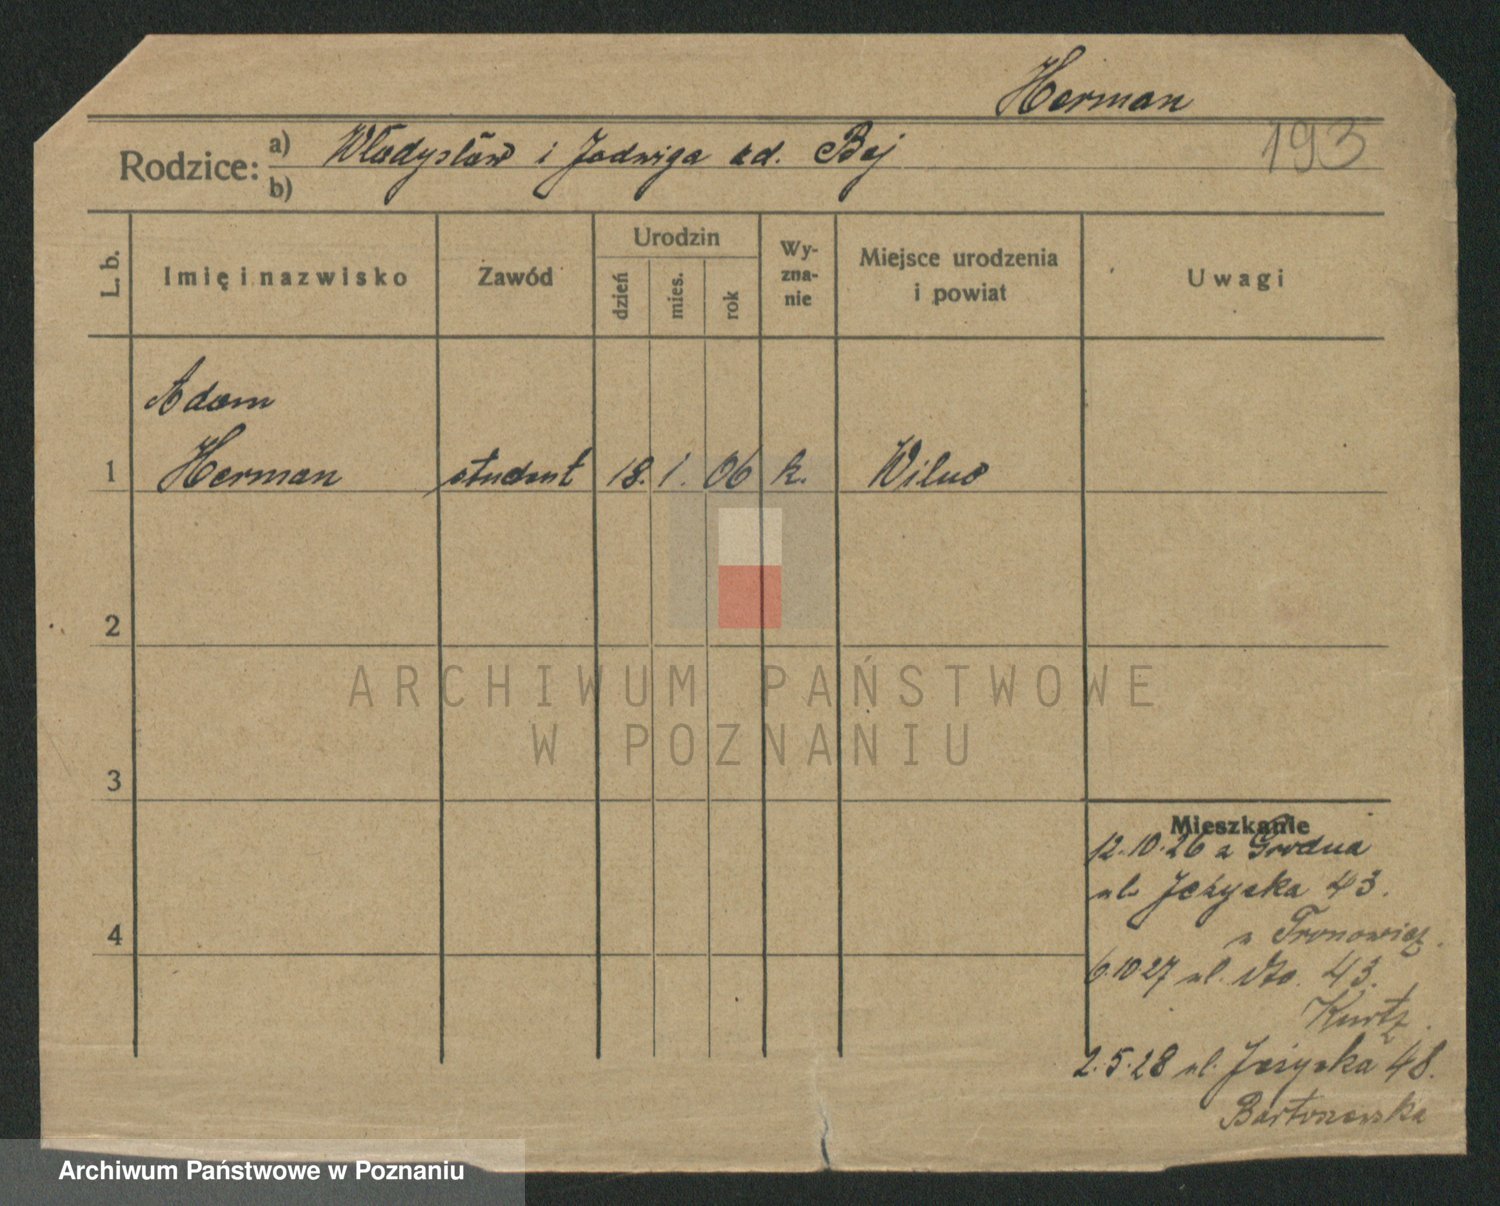 Herman
193
Rodzice: a) Władysław i Jadwiga zd. Bej
b)
L. b. Imię i nazwisko Zawód Urodzin dzień mies. rok Wyznanie Miejsce urodzenia i powiat Uwagi
Adam
1 Herman student 18. 1. 06 k. Wilno
2
3
4
Mieszkanie
12.10.26 z Grodna
ul. Jeżycka 43.
u
6.10 27 ul. dto. 43.
Kurtz.
2.5.28 ul. Jeżycka 48.
ARCHIWUM PAŃSTWOWE
W POZNANIU
Archiwum Państwowe w Poznaniu